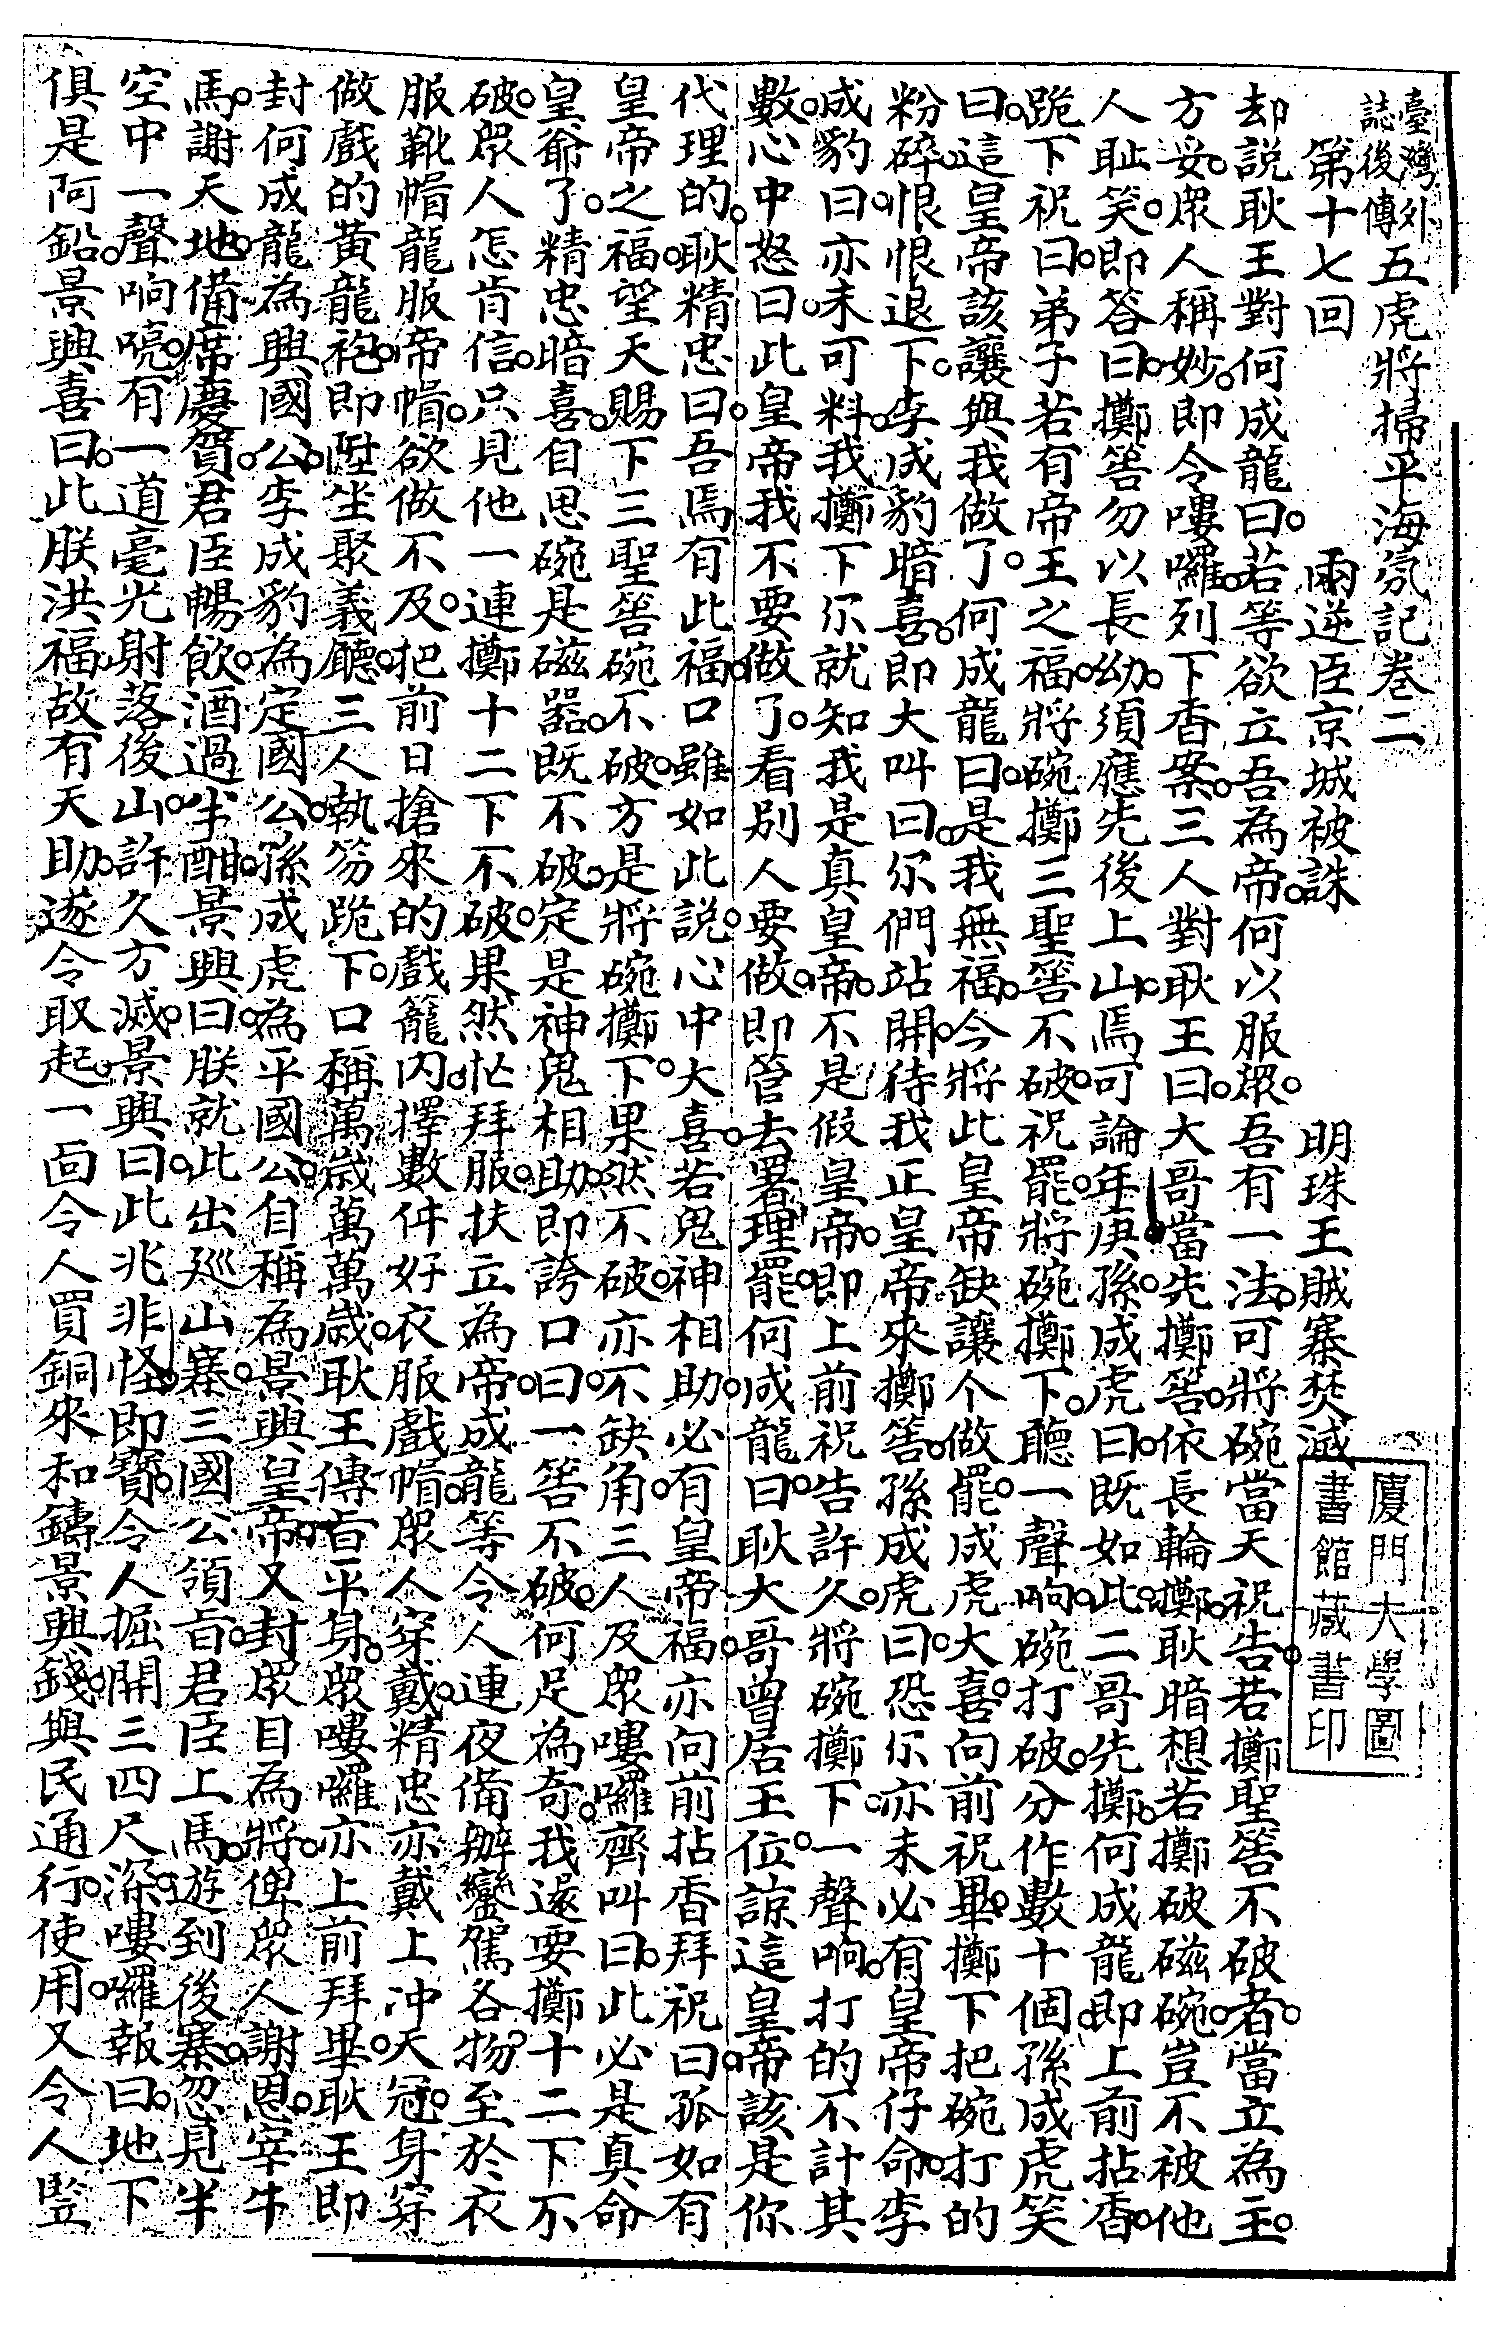 臺灣外誌後傳五虎將掃平海氛記卷二
第十七回 兩逆臣京城被誅 明珠王賊寨焚滅
廈門大學圖書館藏書印
却説耿王對何成龍曰若等欲立吾為帝何以服眾吾有一法可將碗當天祝告若擲聖筶不破者當立為主
方妥眾人稱妙即令嘍囉列下香案三人對耿王曰大哥當先擲筶依長輪擲耿暗想若擲破磁碗豈不被他
人耻笑即答曰擲筶勿以長幼須應先後上山焉可論年庚孫成虎曰既如此二哥先擲何成龍即上前拈香
跪下祝曰弟子若有帝王之福將碗擲三聖筶不破祝罷將碗擲下聽一聲响碗打破分作數十個孫成虎笑
曰這皇帝該讓與我做了何成龍曰是我無福今將此皇帝缺讓个做罷成虎大喜向前祝畢擲下把碗打的
粉碎恨恨退下李成豹暗喜即大叫曰尔們站開待我正皇帝來擲筶孫成虎曰恐尔亦未必有皇帝仔命李
成豹曰亦未可料我擲下尔就知我是真皇帝不是假皇帝即上前祝告許久將碗擲下一聲响打的不計其
數心中怒曰此皇帝我不要做了看別人要做即管去署理罷何成龍曰耿大哥曾居王位諒這皇帝該是你
代理的耿精忠曰吾焉有此福口雖如此説心中大喜若鬼神相助必有皇帝福亦向前拈香拜祝曰孤如有
皇帝之福望天賜下三聖筶碗不破方是將碗擲下果然不破亦不缺角三人及眾嘍囉齊叫曰此必是真命
皇爺了精忠暗喜自思碗是磁器既不破定是神鬼相助即誇口曰一筶不破何足為奇我遠要擲十二下不
破眾人怎肯信只見他一連擲十二下不破果然忙拜服扶立為帝成龍等令人連夜備辦鑾駕各物至於衣
服靴帽龍服帝帽欲做不及把前日搶來的戲籠内擇數件好衣服戲帽眾人穿戴精忠亦戴上冲天冠身穿
做戲的黃龍袍即陞坐聚義廳三人執笏跪下口稱萬歲萬萬歲耿王傳旨平身眾嘍囉亦上前拜畢耿王即
封何成龍為興國公李成豹為定國公孫成虎為平國公自稱為景興皇帝又封眾目為將俾眾人謝恩宰牛
馬謝天地備席慶賀君臣暢飲酒過半酣景興曰朕就此出廵山寨三國公領旨君臣上馬遊到後寨忽見半
空中一聲响喨有一道毫光射落後山許久方滅景興曰此兆非怪即寶令人掘開三四尺深嘍囉報曰地下
俱是阿鉛景興喜曰此朕洪福故有天助遂令取起一面令人買銅來和鑄景興錢與民通行使用又令人豎